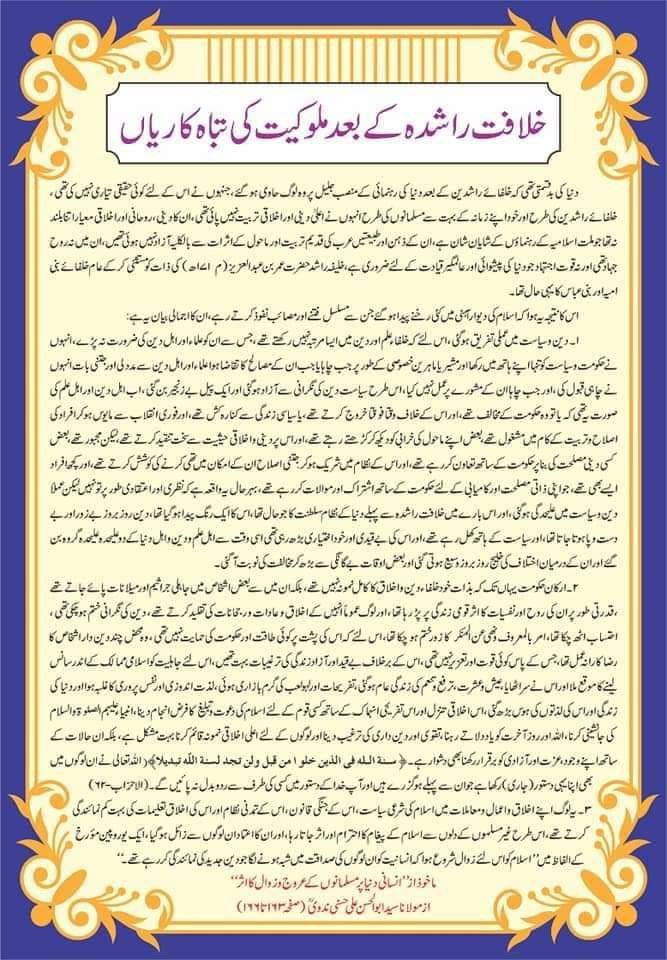 خلافت راشدہ کے بعد ملوکیت کی تباہ کاریاں
دنیا کی بدقسمتی تھی کہ خلفائے راشدین کے بعد دنیا کی رہنمائی کے منصب جلیل پر وہ لوگ حاوی ہو گئے، جنہوں نے اس کے لئے کوئی حقیقی تیاری نہیں کی تھی،
خلفائے راشدین کی طرح اور خود اپنے زمانہ کے بہت سے مسلمانوں کی طرح انہوں نے اعلیٰ دینی اور اخلاقی تربیت نہیں پائی تھی، ان کا دینی، روحانی اور اخلاقی معیار اتنا بلند
نہ تھا جو ملت اسلامیہ کے رہنماؤں کے شایان شان ہے، ان کے ذہن اور طبیعتیں عرب کی قدیم تربیت اور ماحول کے اثرات سے بالکلیہ آزاد نہیں ہوئی تھیں، ان میں نہ روح
جہاد تھی اور نہ قوت اجتہاد جو دنیا کی پیشوائی اور عالمگیر قیادت کے لئے ضروری ہے، خلیفہ راشد حضرت عمر بن عبدالعزیز (م ۱۷۱ھ) کی ذات کو مستثنیٰ کر کے عام خلفائے بنی
امیہ اور بنی عباس کا یہی حال تھا۔
اس کا نتیجہ یہ ہوا کہ اسلام کی دیوار آہنی میں کئی رخنے پیدا ہو گئے جن سے مسلسل فتنے اور مصائب نفوذ کرتے رہے، ان کا اجمالی بیان یہ ہے:
۱۔ دین و سیاست میں عملی تفریق ہو گئی، اس لئے کہ خلفاء علم اور دین میں ایسا مرتبہ نہیں رکھتے تھے، جس سے ان کو علماء اور اہل دین کی ضرورت نہ پڑے، انہوں
نے حکومت و سیاست کو تنہا اپنے ہاتھ میں رکھا اور مشیر یا ماہرین خصوصی کے طور پر جب چاہا یا جب ان کے مصالح کا تقاضا ہوا علماء اور اہل دین سے مدد لی اور جتنی بات انہوں
نے چاہی قبول کی، اور جب چاہا ان کے مشورے پر عمل نہیں کیا، اس طرح سیاست دین کی نگرانی سے آزاد ہو گئی اور ایک پیل بے زنجیر بن گئی، اب اہل دین اور اہل علم کی
صورت یہ تھی کہ یا تو وہ حکومت کے مخالف تھے، اور اس کے خلاف وقتاً فوقتاً خروج کرتے تھے، یا سیاسی زندگی سے کنارہ کش تھے، اور فوری انقلاب سے مایوس ہو کر افراد کی
اصلاح و تربیت کے کام میں مشغول تھے، بعض اپنے ماحول کی خرابی کو دیکھ کر کڑھتے رہتے تھے، اور اس پر دینی و اخلاقی حیثیت سے سخت تنقید کرتے تھے، لیکن مجبور تھے، بعض
کسی دینی مصلحت کی بنا پر حکومت کے ساتھ تعاون کر رہے تھے، اور اس کے نظام میں شریک ہو کر جتنی اصلاح ان کے امکان میں تھی کرنے کی کوشش کرتے تھے، اور کچھ افراد
ایسے بھی تھے، جو اپنی ذاتی مصلحت اور کامیابی کے لئے حکومت کے ساتھ اشتراک اور موالات کر رہے تھے، بہرحال یہ واقعہ ہے کہ نظری اور اعتقادی طور پر تو نہیں لیکن عملاً
دین و سیاست میں علیحدگی ہو گئی، اور اس بارے میں خلافت راشدہ سے پہلے دنیا کے نظام سلطنت کا جو حال تھا، اس کا ایک رنگ پیدا ہو گیا تھا، دین روز بروز بے زور اور بے
دست و پا ہوتا جاتا تھا، اور سیاست کے ہاتھ کھل رہے تھے، اور اس کی بے قیدی اور خود اختیاری بڑھ رہی تھی اسی وقت سے اہل علم و دین واہل دنیا کے دو علیحدہ علیحدہ گروہ بن
گئے اور ان کے درمیان اختلاف کی خلیج روز بروز وسیع ہوتی گئی اور بعض اوقات بے گانگی سے بڑھ کر مخالفت کی نوبت آ گئی۔
۲۔ ارکان حکومت یہاں تک کہ بذات خود خلفاء دین و اخلاق کا کامل نمونہ نہیں تھے، بلکہ ان میں سے بعض اشخاص میں جاہلی جراثیم اور میلانات پائے جاتے تھے
، قدرتی طور پر ان کی روح اور نفسیات کا اثر قومی زندگی پر پڑ رہا تھا، اور لوگ عموماً انہیں کے اخلاق و عادات و رجحانات کی تقلید کرتے تھے، دین کی نگرانی ختم ہو چکی تھی،
احتساب اٹھ چکا تھا، امر بالمعروف و نہی عن المنکر کا زور ختم ہو چکا تھا، اس لئے کہ اس کی پشت پر کوئی طاقت اور حکومت کی حمایت نہیں تھی، وہ محض چند دین دار اشخاص کا
رضا کارانہ عمل تھا، جس کے پاس کوئی قوت اور تعزیر نہیں تھی، اس کے برخلاف بے قید اور آزاد زندگی کی ترغیبات بہت تھیں، اس لئے جاہلیت کو اسلامی ممالک کے اندر سانس
لینے کا موقع ملا اور اس نے سر اٹھایا، عیش و عشرت، ترفع و تنعم کی زندگی عام ہو گئی، تفریحات اور لہو و لعب کی گرم بازاری ہوئی، لذت اندوزی اور نفس پروری کا غلبہ ہوا اور دنیا کی
زندگی اور اس کی لذتوں کی ہوس بڑھ گئی، اس اخلاقی تنزل اور اس تفریحی انہماک کے ساتھ کسی قوم کے لئے اسلام کی دعوت و تبلیغ کا فرض انجام دینا، انبیا علیہم الصلوۃ والسلام
کی جانشینی کرنا، اللہ اور روز آخرت کو یاد دلاتے رہنا، تقویٰ اور دین داری کی ترغیب دینا اور لوگوں کے لئے اعلیٰ اخلاقی نمونہ قائم کرنا بہت مشکل ہے، بلکہ ان حالات کے
ساتھ اپنے وجود، عزت اور آزادی کو برقرار رکھنا بھی دشوار ہے۔ ﴿سنۃ اللہ فی الذین خلوا من قبل ولن تجد لسنۃ اللہ تبدیلا﴾ (اللہ تعالیٰ نے ان لوگوں میں
بھی اپنا یہی دستور (جاری) رکھا ہے جو ان سے پہلے ہو گزرے ہیں اور آپ خدا کے دستور میں کسی کی طرف سے ردو بدل نہ پائیں گے۔ (الاحزاب-۶۲)
۳۔ یہ لوگ اپنے اخلاق و اعمال و معاملات میں اسلام کی شرعی سیاست، اس کے جنگی قانون، اس کے تمدنی نظام اور اس کی اخلاقی تعلیمات کی بہت کم نمائندگی
کرتے تھے، اس طرح غیر مسلموں کے دلوں سے اسلام کے پیغام کا احترام اور اثر جاتا رہا، اور ان کا اعتماد ان لوگوں سے زائل ہو گیا، ایک یورپین مؤرخ
کے الفاظ میں "اسلام کو اس لئے زوال شروع ہوا کہ انسانیت کو ان لوگوں کی صداقت میں شبہ ہونے لگا جو دین جدید کی نمائندگی کر رہے تھے۔"
ماخوذ از "انسانی دنیا پر مسلمانوں کے عروج و زوال کا اثر"
از مولانا سید ابوالحسن علی حسنی ندویؒ (صفحہ ۱۶۳ تا ۱۶۶)